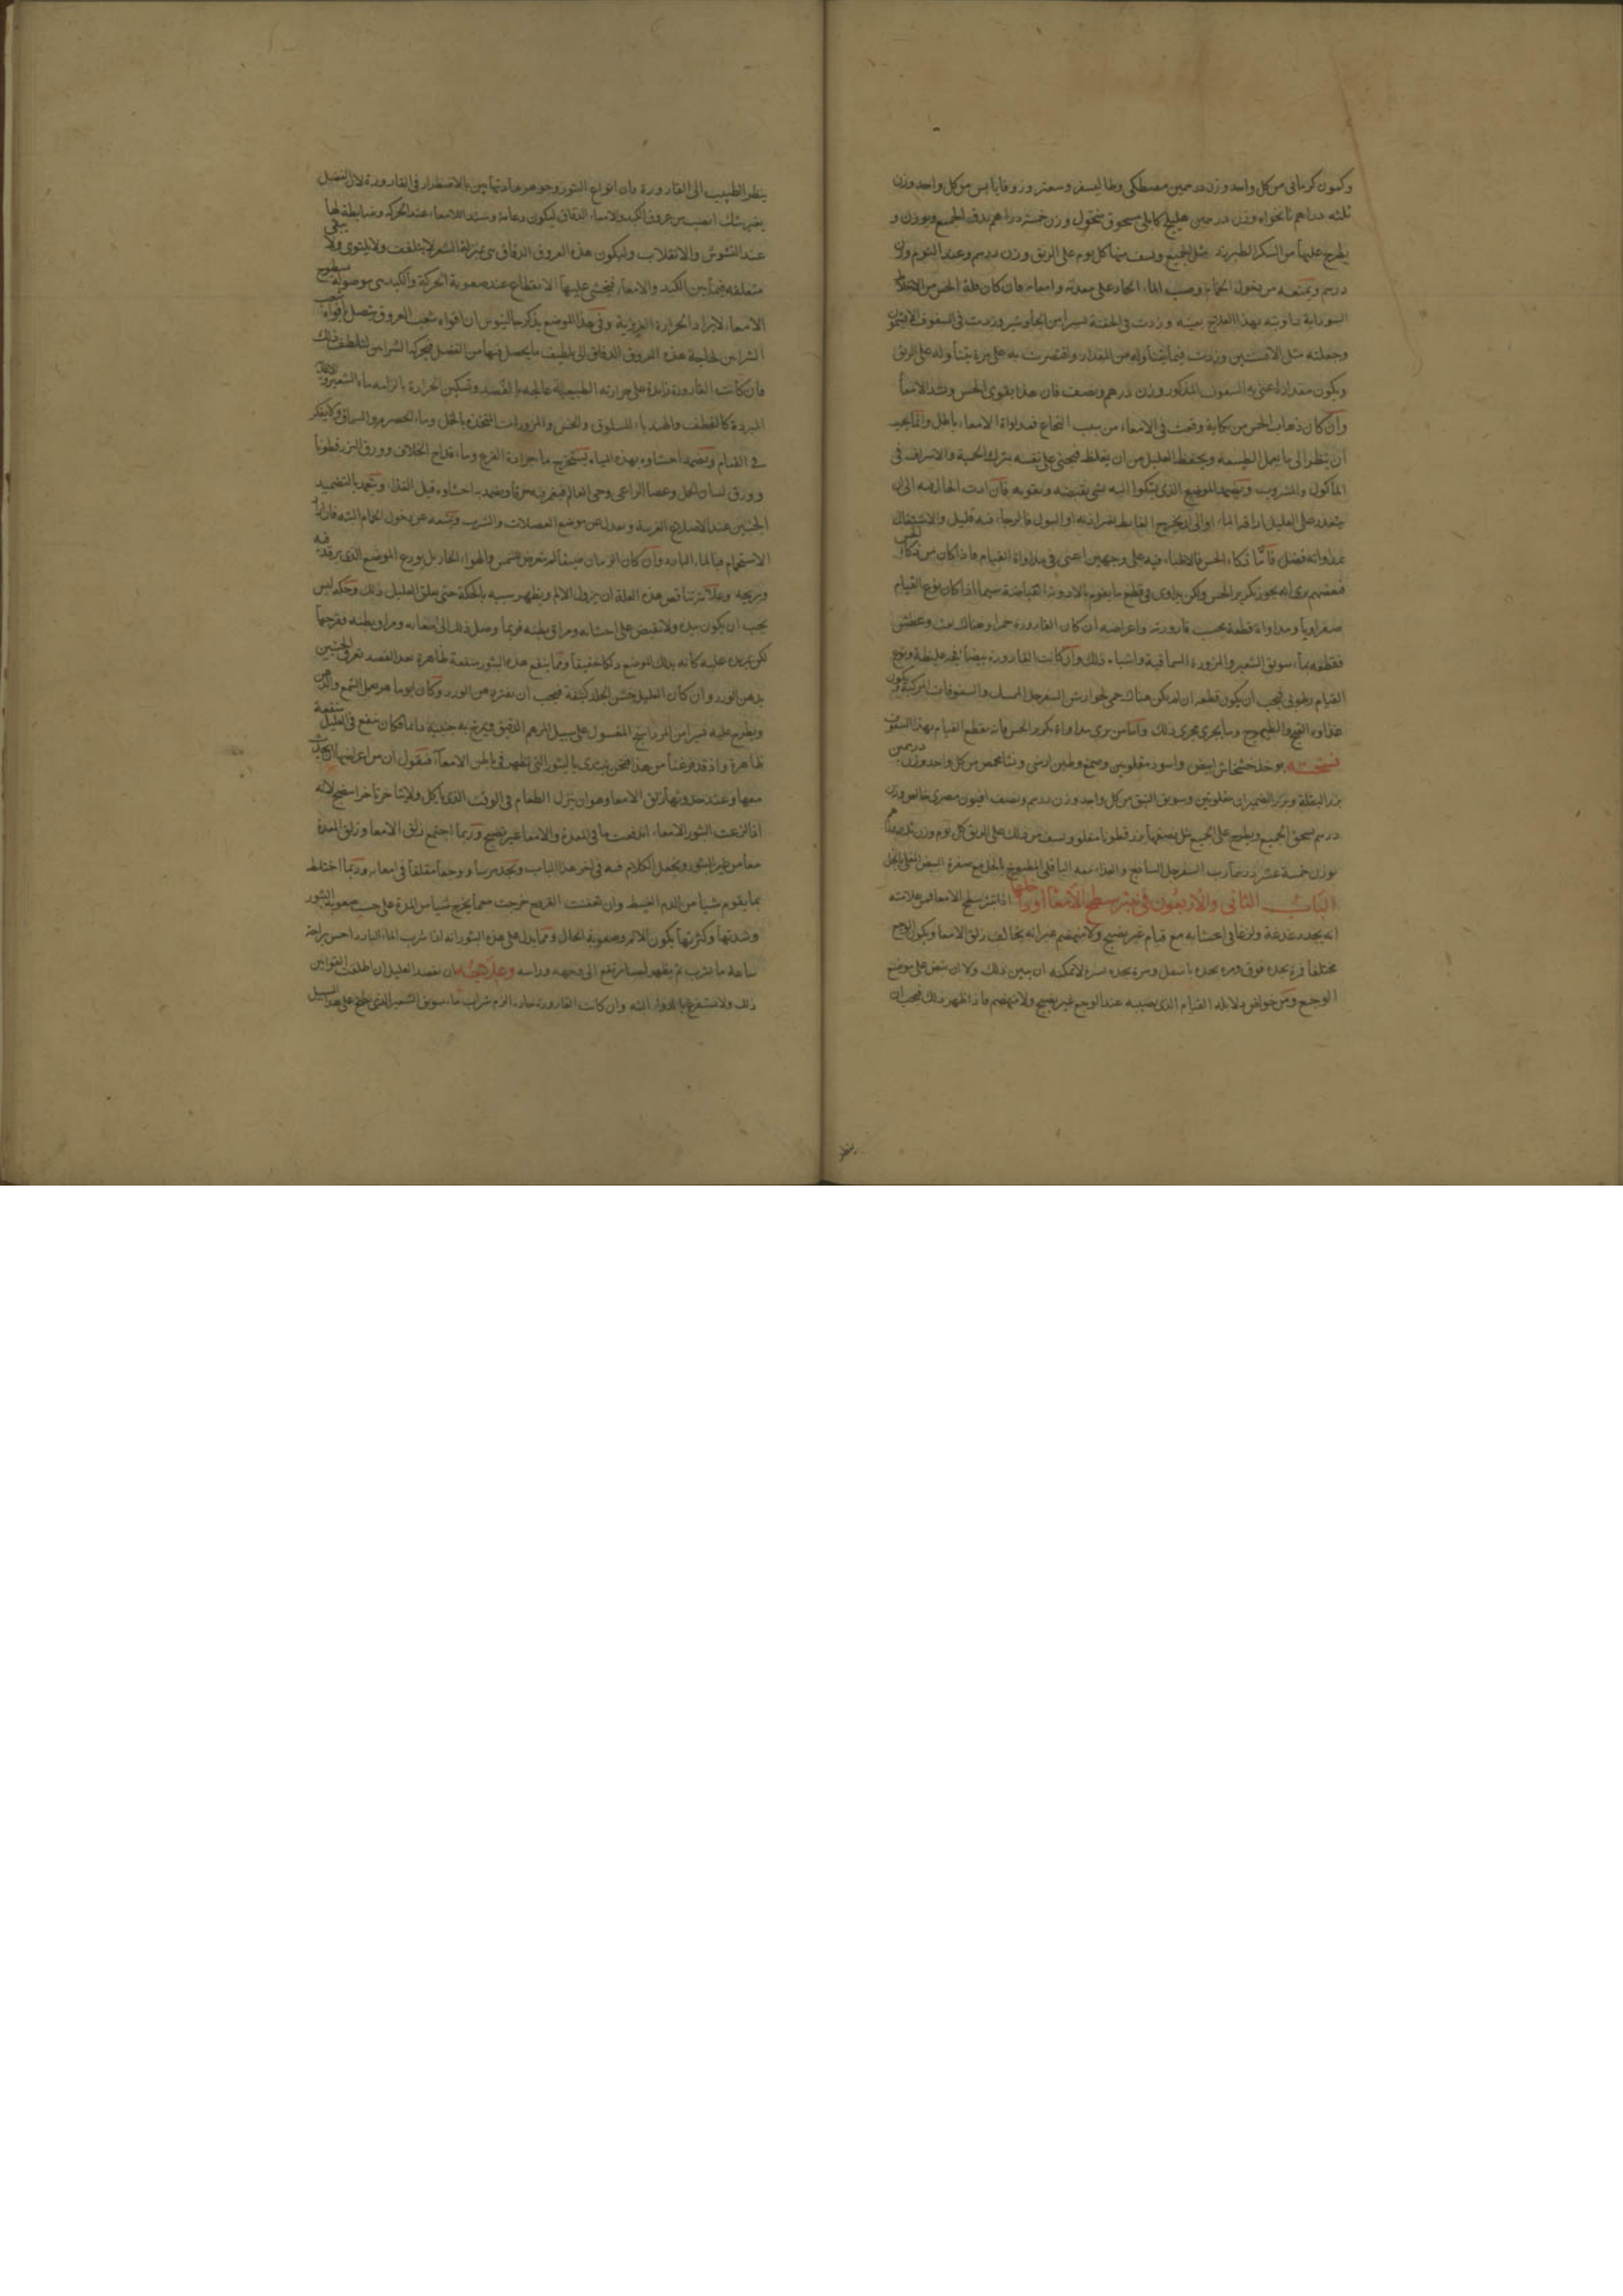 وكمون كرمانى من كل واحد وزن درهمين مصطكى وطاليسفر وسعتر وزوفا يابس من كل واحد وزن
ثلثه دراهم نانخواه وزن درهمين هليلج كابلى مسحوق منخول وزن خمسة دراهم يدق الجميع ويوزن و
يطرح عليها من السكر الطبرزد مثل الجميع ويسف منها كل يوم على الريق وزن درهم وعند النوم وزن
درهم ويمنعه من دخول الحمام وصب الماء الحار على معدته وامعائه فان كان قلة الحس من الاخلاط
السوداوية داويته بهذا العلاج بعينه وزدت فى الحقنة يسيرا من الجاوشير وزدت فى السفوف الافتيمون
وجعلته مثل الافسنتين وزدت فيما يتناوله من المقدار واقتصرت به على مرة يتناوله على الريق
ويكون مقدار ما اعنى به السفوف المذكور وزن درهم ونصف فان هذا يقوى الحس ويشد الامعا
وان كان ذهاب الحس من نكاية وقعت فى الامعاء من سبب النخاع فمداواة الامعاء باطل وانما يجب
ان ينظر الى ما يعمل الطبيعه ويحتفظ العليل من ان يغلظ فيجنى على نفسه بترك الحمية والاسراف فى
الماكول والمشروب ويضمد الموضع الذى يشكوا اليه بشى يقبضه ويقويه فان ادت الحال فيه الى ان
يتعذر على العليل اراقة الماء او الى ان يخرج الغايط بغير اذنه او البول فالرجاء فيه قليل والاشتغال
بمداواته فضل فاما ذكاء الحس فالاطباء فيه على وجهين اعنى فى مداواة القيام فاذا كان من ذكاء الحس
فبعضهم يرى انه يجوز تكرير الحس ولكن يداوى فى قطع ما يقوم بالادوية القباضة سيما اذا كان نوع القيام
صفراويا ومداواة قطعه بحسب قارورته واعراضه ان كان القارورة حمرا وهناك لهث وعطش
فقطعه بماء سويق الشعير والمزورة السماقية واشباه ذلك وان كانت القارورة بيضا غير غليظة ونوع
القيام رطوبى فيجب ان يكون قطعه ان لم يكن هناك حمى بجوارش السفرجل الممسك والسفوفات المركبة ويكون
غذاوه القبج والطيهوج وما يجرى مجرى ذلك واما من يرى مداواة تكرير الحس فانه يقطع القيام بهذا السفوف
نسخته يوخذ خشخاش ابيض واسود مقلوين وصمغ وطين ارمنى ونشا محمص من كل واحد وزن درهمين
بزر البقلة وبزر الخميرا مقلوين وسويق النبق من كل واحد وزن درهم ونصف افيون مصرى خالص وزن
درهم يسحق الجميع ويطرح على الجميع مثل بعضهما بزر قطونا مقلو ويسف من ذلك على الريق كل يوم وزن ثلثة دراهم
بوزن خمسة عشر درهما رب السفرجل الساذج والغذاء بعد الباقلى المطبوخ بالخل مع صفرة البيض المغلى بالخل
الباب الثانى والاربعون فى بثر سطح الامعا او داخلها اذا بثر سطح الامعا فمن علامته
انه يجد دغدغة ولذعا فى احشايه مع قيام غير نضيج ولا منهضم غير انه يخالف زلق الامعا ويكون الوجع
مختلفا فمرة يجده فوق ومرة يجده باسفل ومرة يجده يسرة لا يمكنه ان يبين ذلك ولا ان ينص على موضع
الوجع ومن خواص دلايله القيام الذى يصيبه عند الوجع غير نضيج ولا منهضم فاذا ظهر ذلك فيجب ان
ينظر الطبيب الى القارورة فان انواع البثور وجوهر مادتها يبين بالاضطرار فى القارورة لان الفضل
بغير شك انصب من عروق الكبد والامعاء الدقاق ليكون دعامة وسندا للامعاء عند الحركة وضابطة لها
عند التشوش والانقلاب وليكون هذه العروق الدقاق هى بمنزلة الشعر لا يلتفت ولا يلتوى ولا يبقى
متعلقه فيما بين الكبد والامعاء فيخشى عليها الانقطاع عند صعوبة الحركة والكبد هى موصولة بسطوح
الامعاء لايراد الحرارة الغريزية وفى هذا الموضع يذكر جالينوس ان افواه شعب العروق يتصل بافواه شعب
الشراين لحاجة هذه العروق الدقاق الى تلطيف ما يحصل فيها من الفضل فيحركها الشراين لتلطف ذلك
فان كانت القارورة زايدة على حرارته الطبيعية عالجه بالفصد وتسكين الحرارة بالزامه ماء الشعير والاغذية
المبردة كالقطف والهندباء المسلوق والخس والمزورات المتخذة بالخل وماء الحصرم والسماق ولا يفكر
فى القيام ويضمد احشاوه بهذه المياه يستخرج ماء جرادة القرع وماء قداح الخلاف وورق البزرقطونا
وورق لسان الحمل وعصا الراعى وحى العالم فيغرى به خرقا ويضمد به احشاوه قبل الغذاء ويتعمد بالتضميد
الجنبين عند الاضلاع القريبة ويعدل عن موضع العضلات والشرب ويمنعه عن دخول الحمام البته فان اراد
الاستحمام فبالماء البارد وان كان الزمان صيفا لم يتعرض للشمس والهواء الحار بل يورح الموضع الذى يرقد فيه
ويريحه وعلامة تناقص هذه العلة ان يزول الالم ويظهر سببه بالحكة حتى يقلق العليل ذلك وحكه ليس
يجب ان يكون بيده ولا يقبض على احشائه ومراق بطنه فربما وصل ذلك الى امعايه ومراق بطنه فقرحها
لكن يمر يده عليه كانه يدلك الموضع دلكا خفيفا ومما ينفع هذه البثور منفعة ظاهرة بعد الفصد تعرق الجنبين
بدهن الورد وان كان العليل خشن الجلد كثيفة فيجب ان يغتر بدهن الورد وكان يوما هو يعمل الشمع والدهن
ويطرح عليه يسيرا من المرداسنج المغسول على سبيل المرهم الرقيق ويمرخ به جنبيه دائما فكان ينفع فى العليل منفعة
ظاهرة واذ قد فرغنا من هذا فنحن نبتدى بالبثور التى تظهر فى باطن الامعآ فنقول ان من اعراضها التى يحدث
معها وعند حدوثها زلق الامعا وهو ان ينزل الطعام فى الوقت الذى ياكل ولا يتاخر تاخرا صحيح لانه
اذا لذعت البثور الامعاء اندفعت ما فى المعدة والامعا غير نضيج وربما اجتمع زلق الامعا وزلق المعدة
معا من غير البثور ويجعل الكلام فيه فى اخر هذا الباب ويجد مرسا ووجعا مقلقا فى امعايه وربما اختلط
بما يقوم شيا من الدم الخيط وان تعفنت القروح خرجت معما يخرج شيا من المدة على حسب صعوبة البثور
وشدتها وكثرتها يكون الالم وصعوبة الحال ومما يدل على هذه البثور انه اذا شرب الماء البارد احس براحة
ساعة ما يشرب ثم يظهر لهيبا يرتفع الى وجهه وراسه وعلاجه ان يفصد العليل ان اطلقت القوانين
ذلك ولا يستفرغ بالدواء البته وان كانت القارورة حارة الزم شراب ماء سويق الشعير الذى يطبخ على هذا السبيل